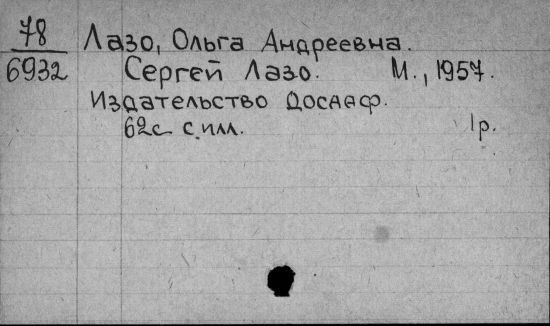 78
6932
Лазо, Ольга Андреевна.
Сергей Лазо. М., 1957.
Издательство ДОСААФ.
62с с илл. 1р.